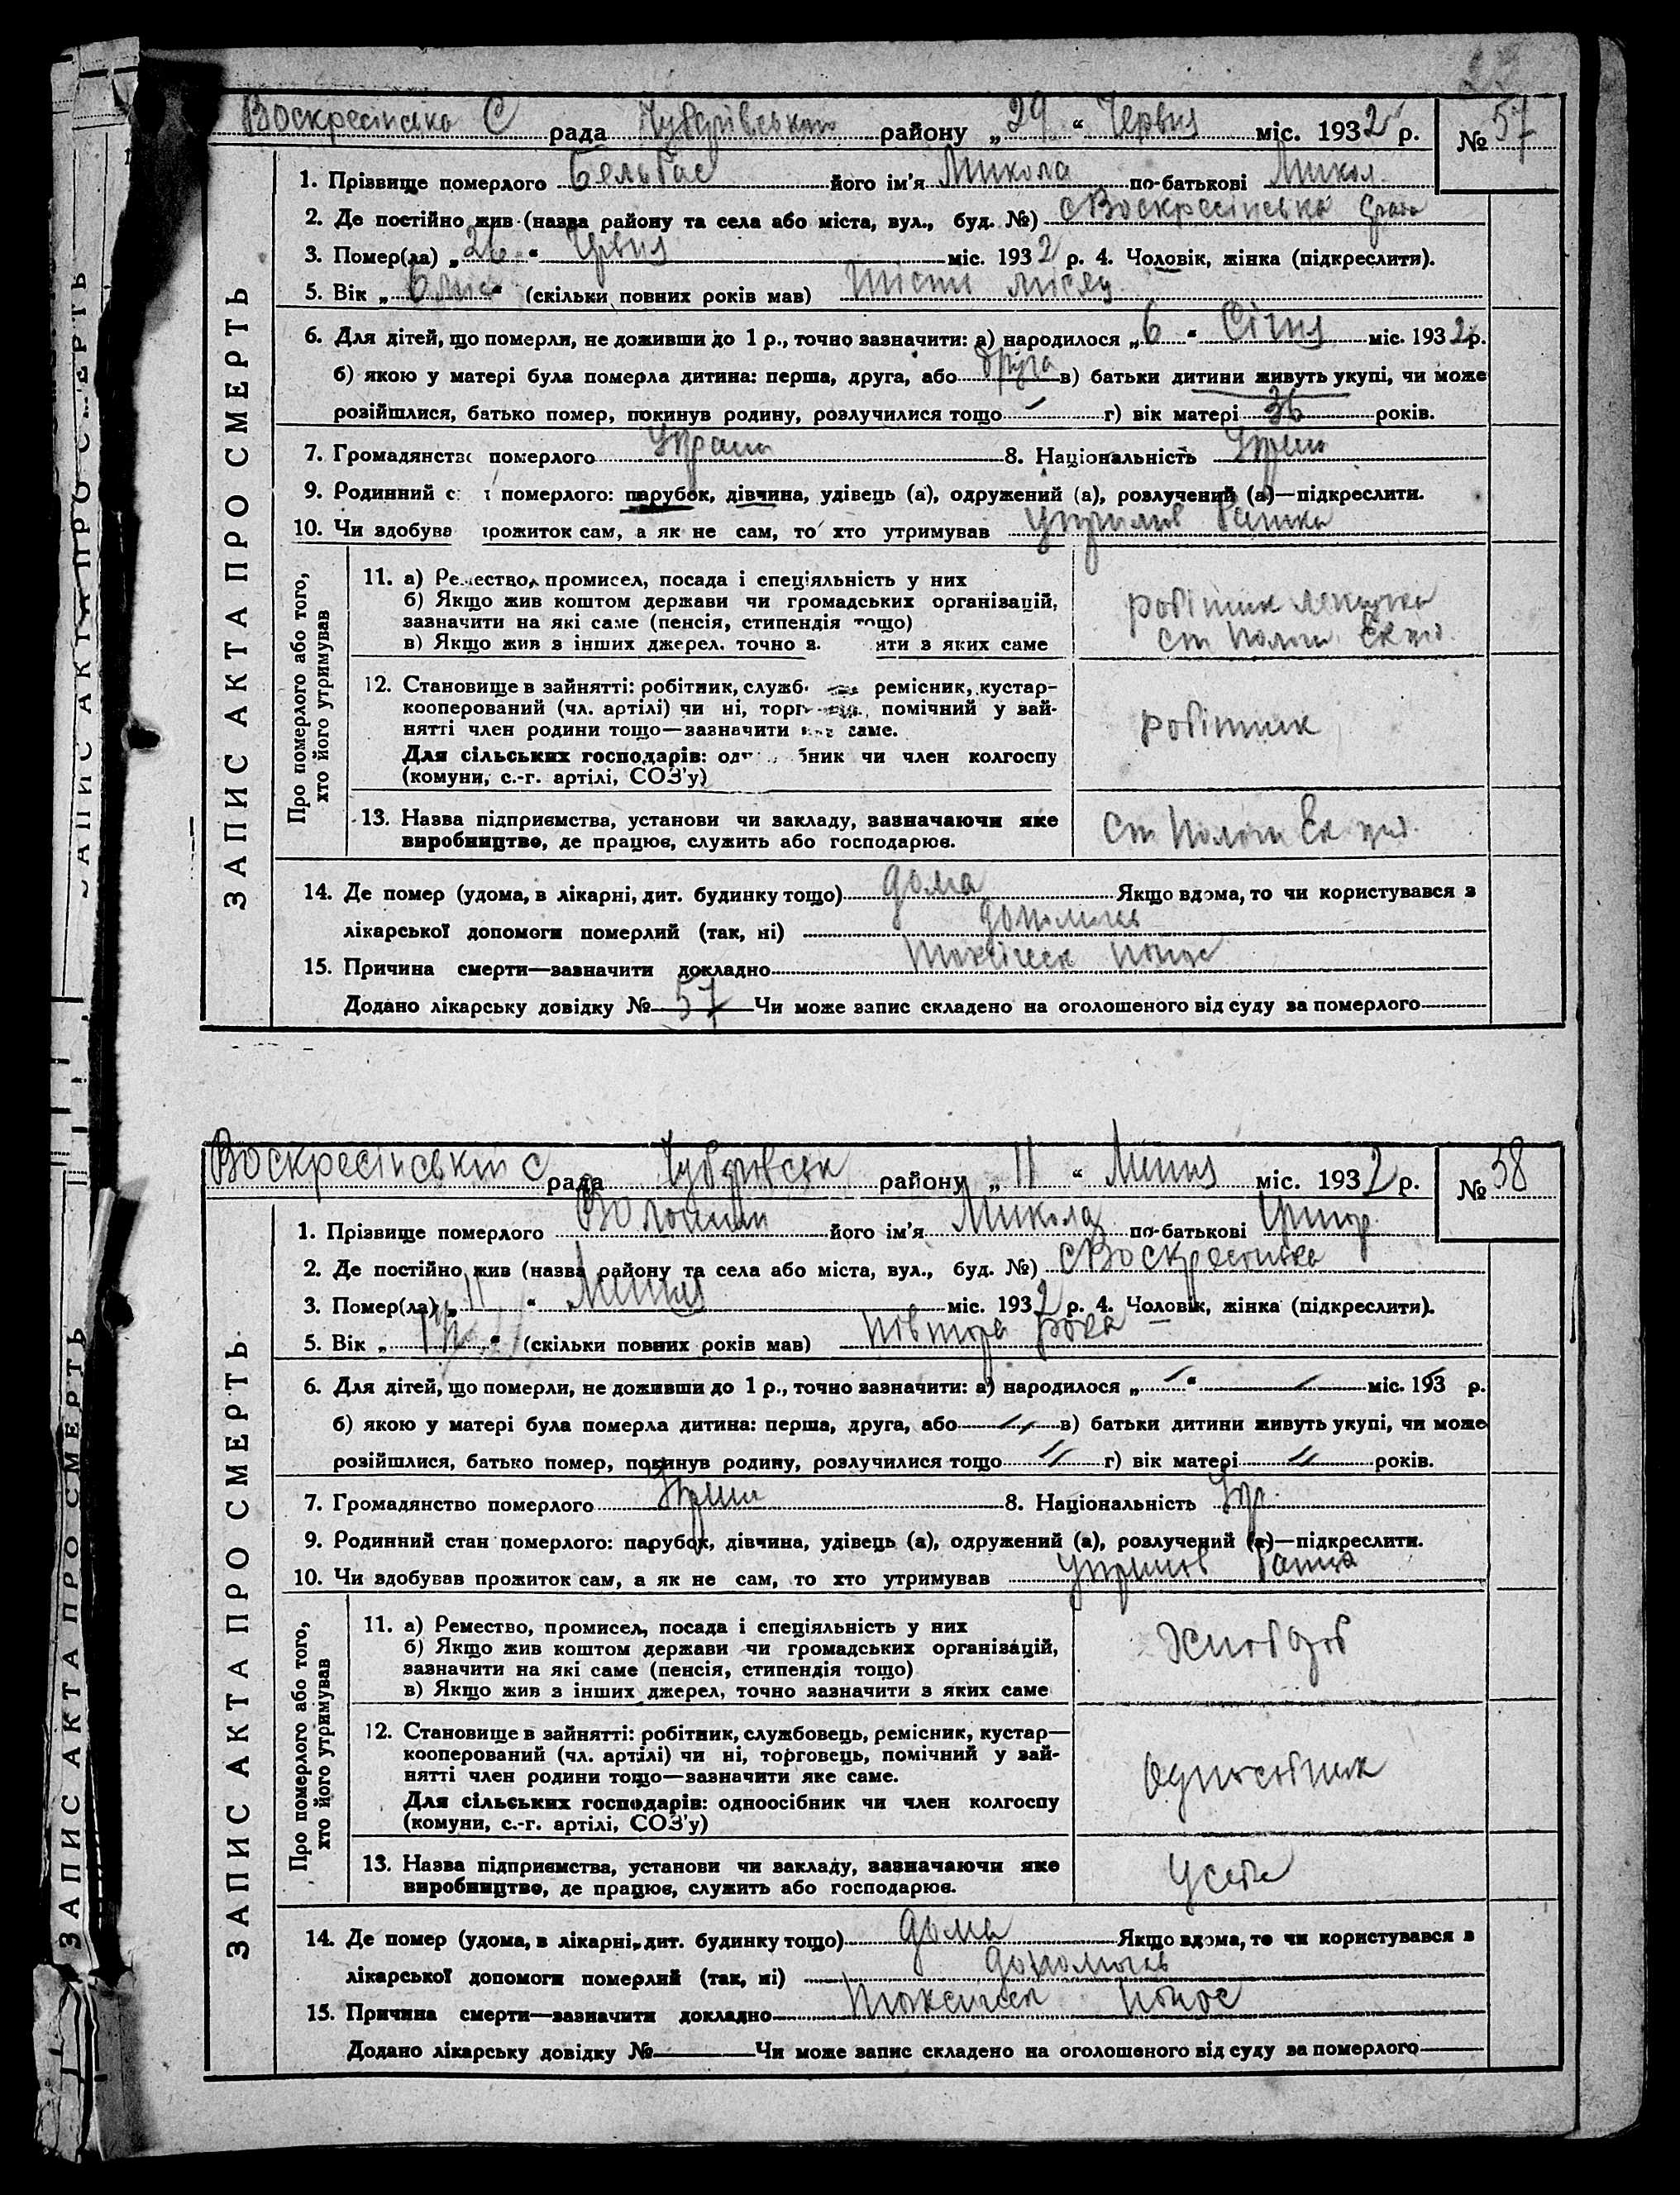 Воскресінська С рада Чубарівського району „29“ Червня міс. 1932 р. № 57
1. Прізвище померлого його ім'я Микола по-батькові Микол.
2. Де постійно жив (назва району та села або міста, вул., буд. №) с Воскресінська
3. Помер(ла) „26“ Червня міс. 1932 р. 4. Чоловік, жінка (підкреслити).
5. Вік „6 міс“ (скільки повних років мав) шість місяц
6. Для дітей, що померли, не доживши до 1 р., точно зазначити: а) народилося „6“ Січня міс. 1932 р.
б) якою у матері була померла дитина: перша, друга, або друга в) батьки дитини живуть укупі, чи може
розійшлися, батько помер, покинув родину, розлучилися тощо г) вік матері 36 років.
7. Громадянство померлого Украин 8. Національність Украин
9. Родинний с і померлого: парубок, дівчина, удівець (а), одружений (а), розлучений (а)—підкреслити.
10. Чи здобува прожиток сам, а як не сам, то хто утримував утримив батько
Про померлого або того,
хто його утримував
11. а) Ремество, промисел, посада і спеціяльність у них
б) Якщо жив коштом держави чи громадських організацій,
зазначити на які саме (пенсія, стипендія тощо)
в) Якщо жив з інших джерел, точно з ити з яких саме
робітник
ст Пологи Ек
12. Становище в зайнятті: робітник, служб ремісник, кустар-
кооперований (чл. артілі) чи ні, торг помічний у зай-
нятті член родини тощо—зазначити яке саме.
Для сільських господарів: од бник чи член колгоспу
(комуни, с.-г. артілі, СОЗ'у)
робітник
13. Назва підприємства, установи чи закладу, зазначаючи яке
виробництво, де працює, служить або господарює.
Ст Пологи Ек
14. Де помер (удома, в лікарні, дит. будинку тощо) дома Якщо вдома, то чи користувався з
лікарської допомоги померлий (так, ні)
15. Причина смерти—зазначити докладно понос
Додано лікарську довідку № 57 Чи може запис складено на оголошеного від суду за померлого
ЗАПИС АКТА ПРО СМЕРТЬ
Воскресінський с рада району „11“ Липня міс. 1932 р. № 58
1. Прізвище померлого Волошин його ім'я Микола по-батькові Григор.
2. Де постійно жив (назва району та села або міста, вул., буд. №) с Воскресенська
3. Помер(ла) „11“ Липня міс. 1932 р. 4. Чоловік, жінка (підкреслити).
5. Вік „1½“ (скільки повних років мав) півтора рока
6. Для дітей, що померли, не доживши до 1 р., точно зазначити: а) народилося „ “ міс. 193 р.
б) якою у матері була померла дитина: перша, друга, або в) батьки дитини живуть укупі, чи може
розійшлися, батько помер, покинув родину, розлучилися тощо г) вік матері років.
7. Громадянство померлого Украин 8. Національність Укр.
9. Родинний стан померлого: парубок, дівчина, удівець (а), одружений (а), розлучений (а)—підкреслити.
10. Чи здобував прожиток сам, а як не сам, то хто утримував утримив батько
Про померлого або того,
хто його утримував
11. а) Ремество, промисел, посада і спеціяльність у них
б) Якщо жив коштом держави чи громадських організацій,
зазначити на які саме (пенсія, стипендія тощо)
в) Якщо жив з інших джерел, точно зазначити з яких саме
Хлібороб
12. Становище в зайнятті: робітник, службовець, ремісник, кустар—
кооперований (чл. артілі) чи ні, торговець, помічний у зай-
нятті член родини тощо—зазначити яке саме.
Для сільських господарів: одноосібник чи член колгоспу
(комуни, с.-г. артілі, СОЗ'у)
Односібник
13. Назва підприємства, установи чи закладу, зазначаючи яке
виробництво, де працює, служить або господарює.
У себе
14. Де помер (удома, в лікарні, дит. будинку тощо) дома Якщо вдома, то чи користувався з
лікарської допомоги померлий (так, ні)
15. Причина смерти—зазначити докладно понос
Додано лікарську довідку № Чи може запис складено на оголошеного від суду за померлого
ЗАПИС АКТА ПРО СМЕРТЬ